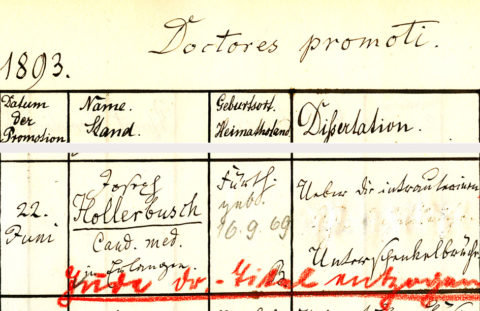 Doctores promoti.
1893.
Datum der Promotion
Name. Stand.
Geburtsort. Heimathsland
Dissertation.
22. Juni
Joseph
Hollerbusch
Cand. med.
in Erlangen
Fürth.
geb.
16. 9. 69
B.
Ueber die intrauterinen
Unterschenkelbrüche
Jude dr.-Titel entzogen